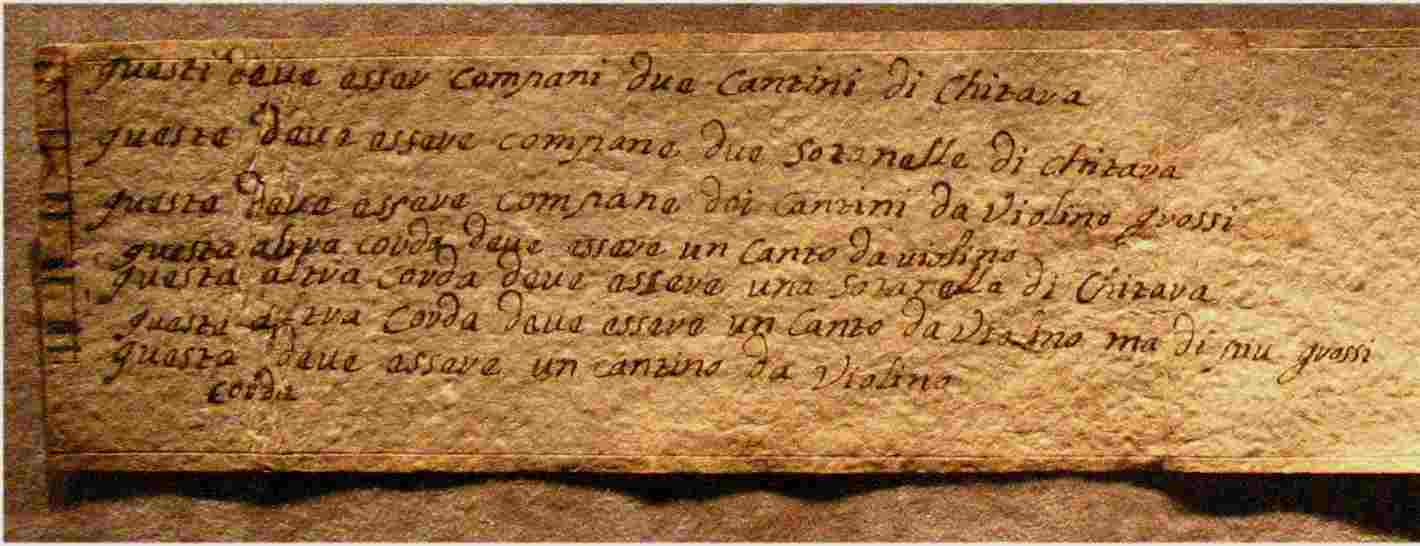 questi deve esser compani due Cantini di Chitara
queste deve essere compane due Sotanelle di Chitara
queste deve essere compane doi Cantini da Violino grossi
questa altra corda deve essere un Canto da violino
questa altra Corda deve essere una Sotanella di Chitara
questa altra Corda deve essere un Canto da Violino ma di piu grossi
questa deve essere un cantino da Violino
corda